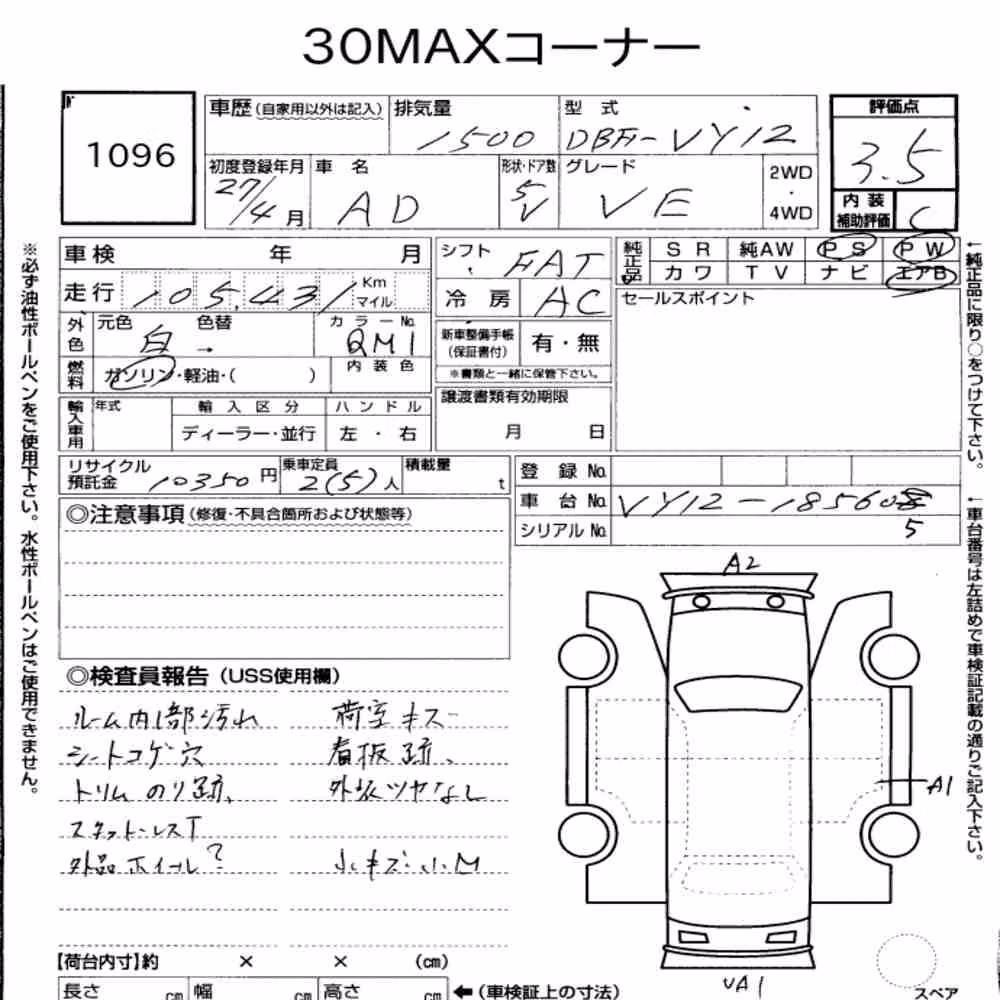 30MAXコーナー
1096
車歴(自家用以外は記入)
排気量
1500
型 式
DBA-VY12
評価点
3.5
内 装
補助評価
C
初度登録年月
27/4月
車 名
AD
形状・ドア数
5
V
グレード
VE
2WD
・
4WD
車検 年 月
シフト
FAT
純正品
SR 純AW PS PW
カワ TV ナビ エアB
走行 105,431 Km
マイル
冷 房
AC
セールスポイント
外色
元色 色替
白 →
カラーNo.
QM1
新車整備手帳
(保証書付)
有・無
※書類と一緒に保管下さい。
燃料
ガソリン・軽油・( )
内 装 色
譲渡書類有効期限
月 日
輸入車用
年式
輸 入 区 分
ハ ン ド ル
ディーラー・並行
左 ・ 右
リサイクル
預託金
10350円
乗車定員
2(5)人
積載量
t
登 録 No.
車 台 No.
VY12-185608
シリアル No.
5
◎注意事項(修復・不具合箇所および状態等)
◎検査員報告(USS使用欄)
ルーム内部汚れ
シートコゲ穴
トリム のり跡、
スタットレスT
外品ホイール?
荷室キズ
看板跡、
外板ツヤなし
小キズ小M
A2
A1
UA1
【荷台内寸】約 × × (cm)
長さ cm
幅 cm
高さ cm
←(車検証上の寸法)
スペア
※必ず油性ボールペンをご使用下さい。水性ボールペンはご使用できません。
←純正品に限り○をつけて下さい。
←車台番号は左詰めで車検証記載の通りご記入下さい。